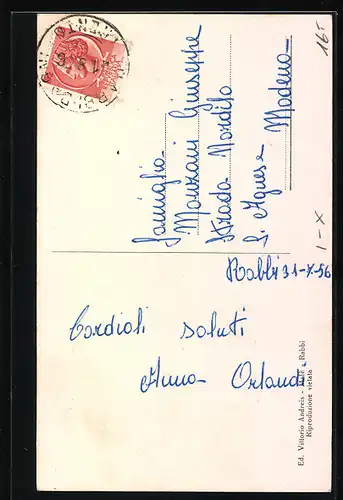 16 5
Famiglia
Monzani Giuseppe
Strada Nardilo
S. Agnese Modena
1-X
Rabbi 31-7-56
Cordiali saluti
Anna Orlando
Ed. Vittorio Andreis - Malè - Rabbi
Riproduzione vietata